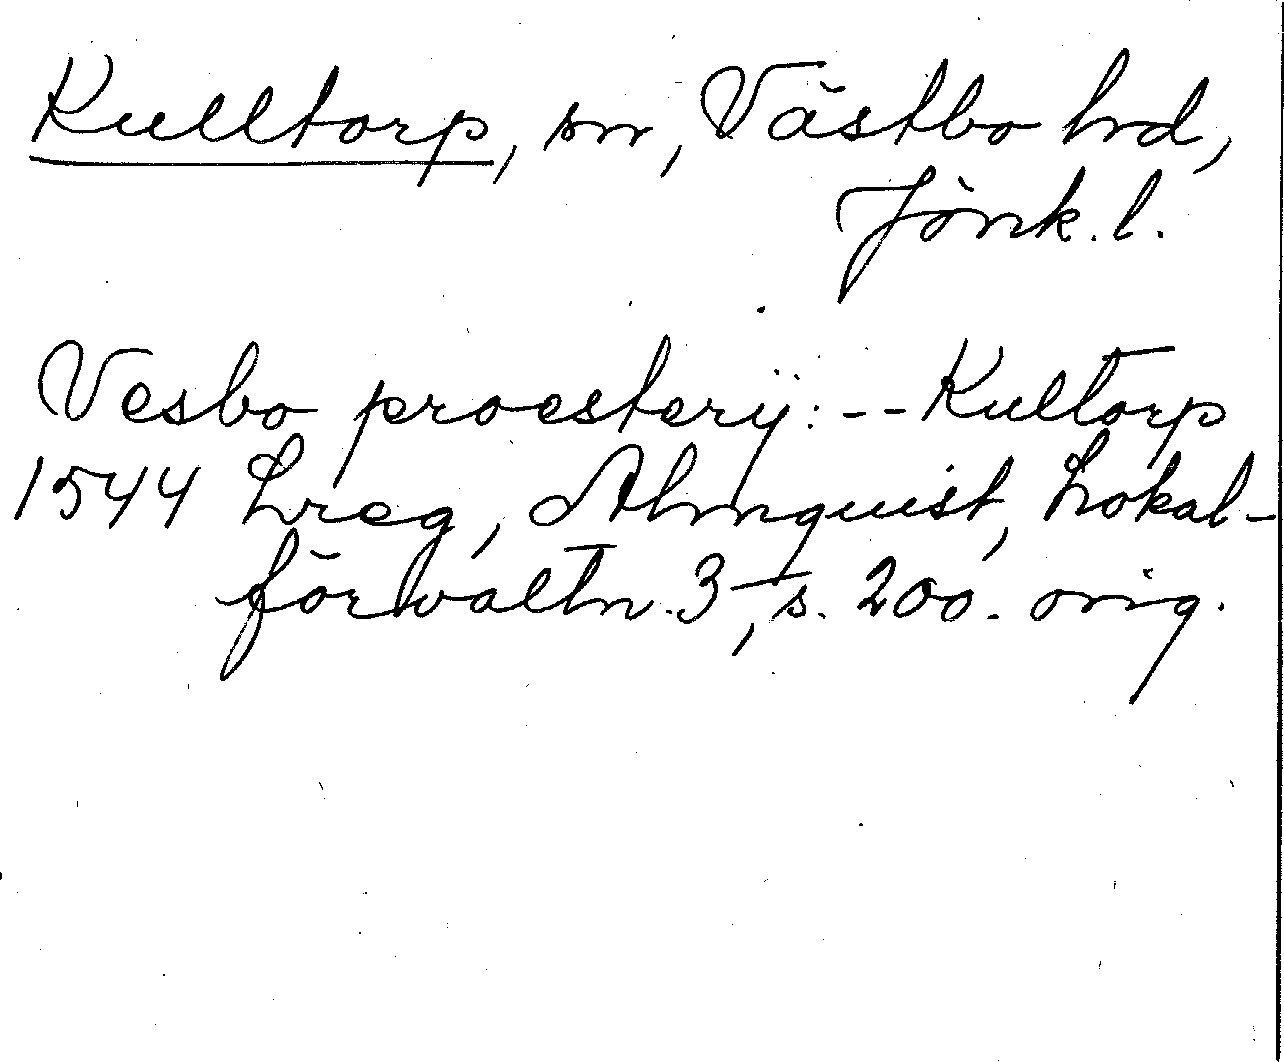 Kulltorp, sn, Västbo hrd,
Jönk. l.
Vesbo proestery: -- Kultorp
1544 Lreg, Almquist, Lokal-
förvaltn. 3, s. 200. orig.